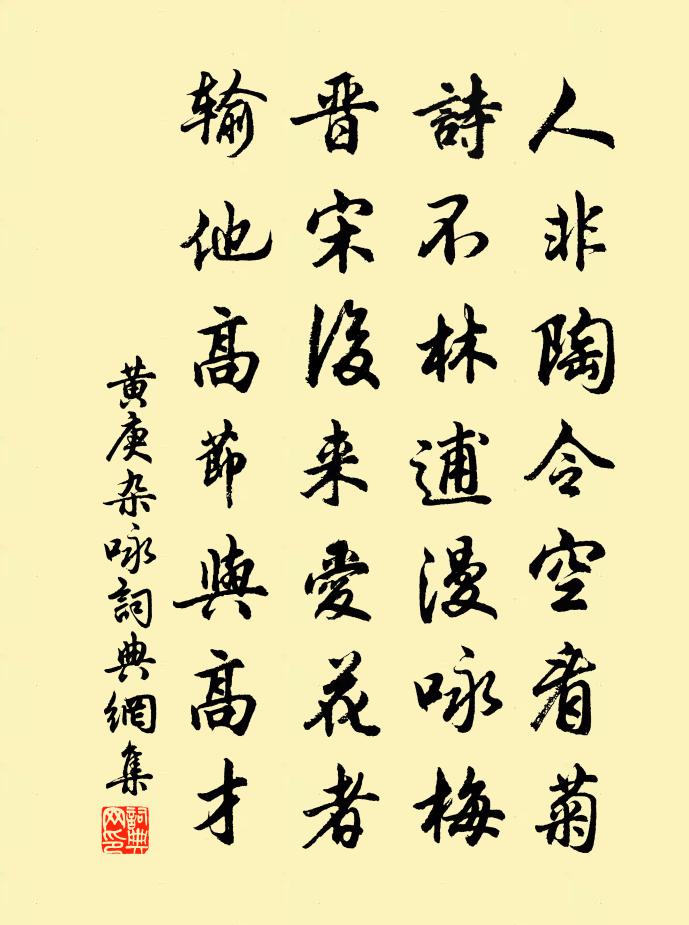 人非陶令空看菊
詩不林逋漫咏梅
晋宋後来愛花者
輸他高節與高才
黄庚杂咏詞典網集
詞典网印